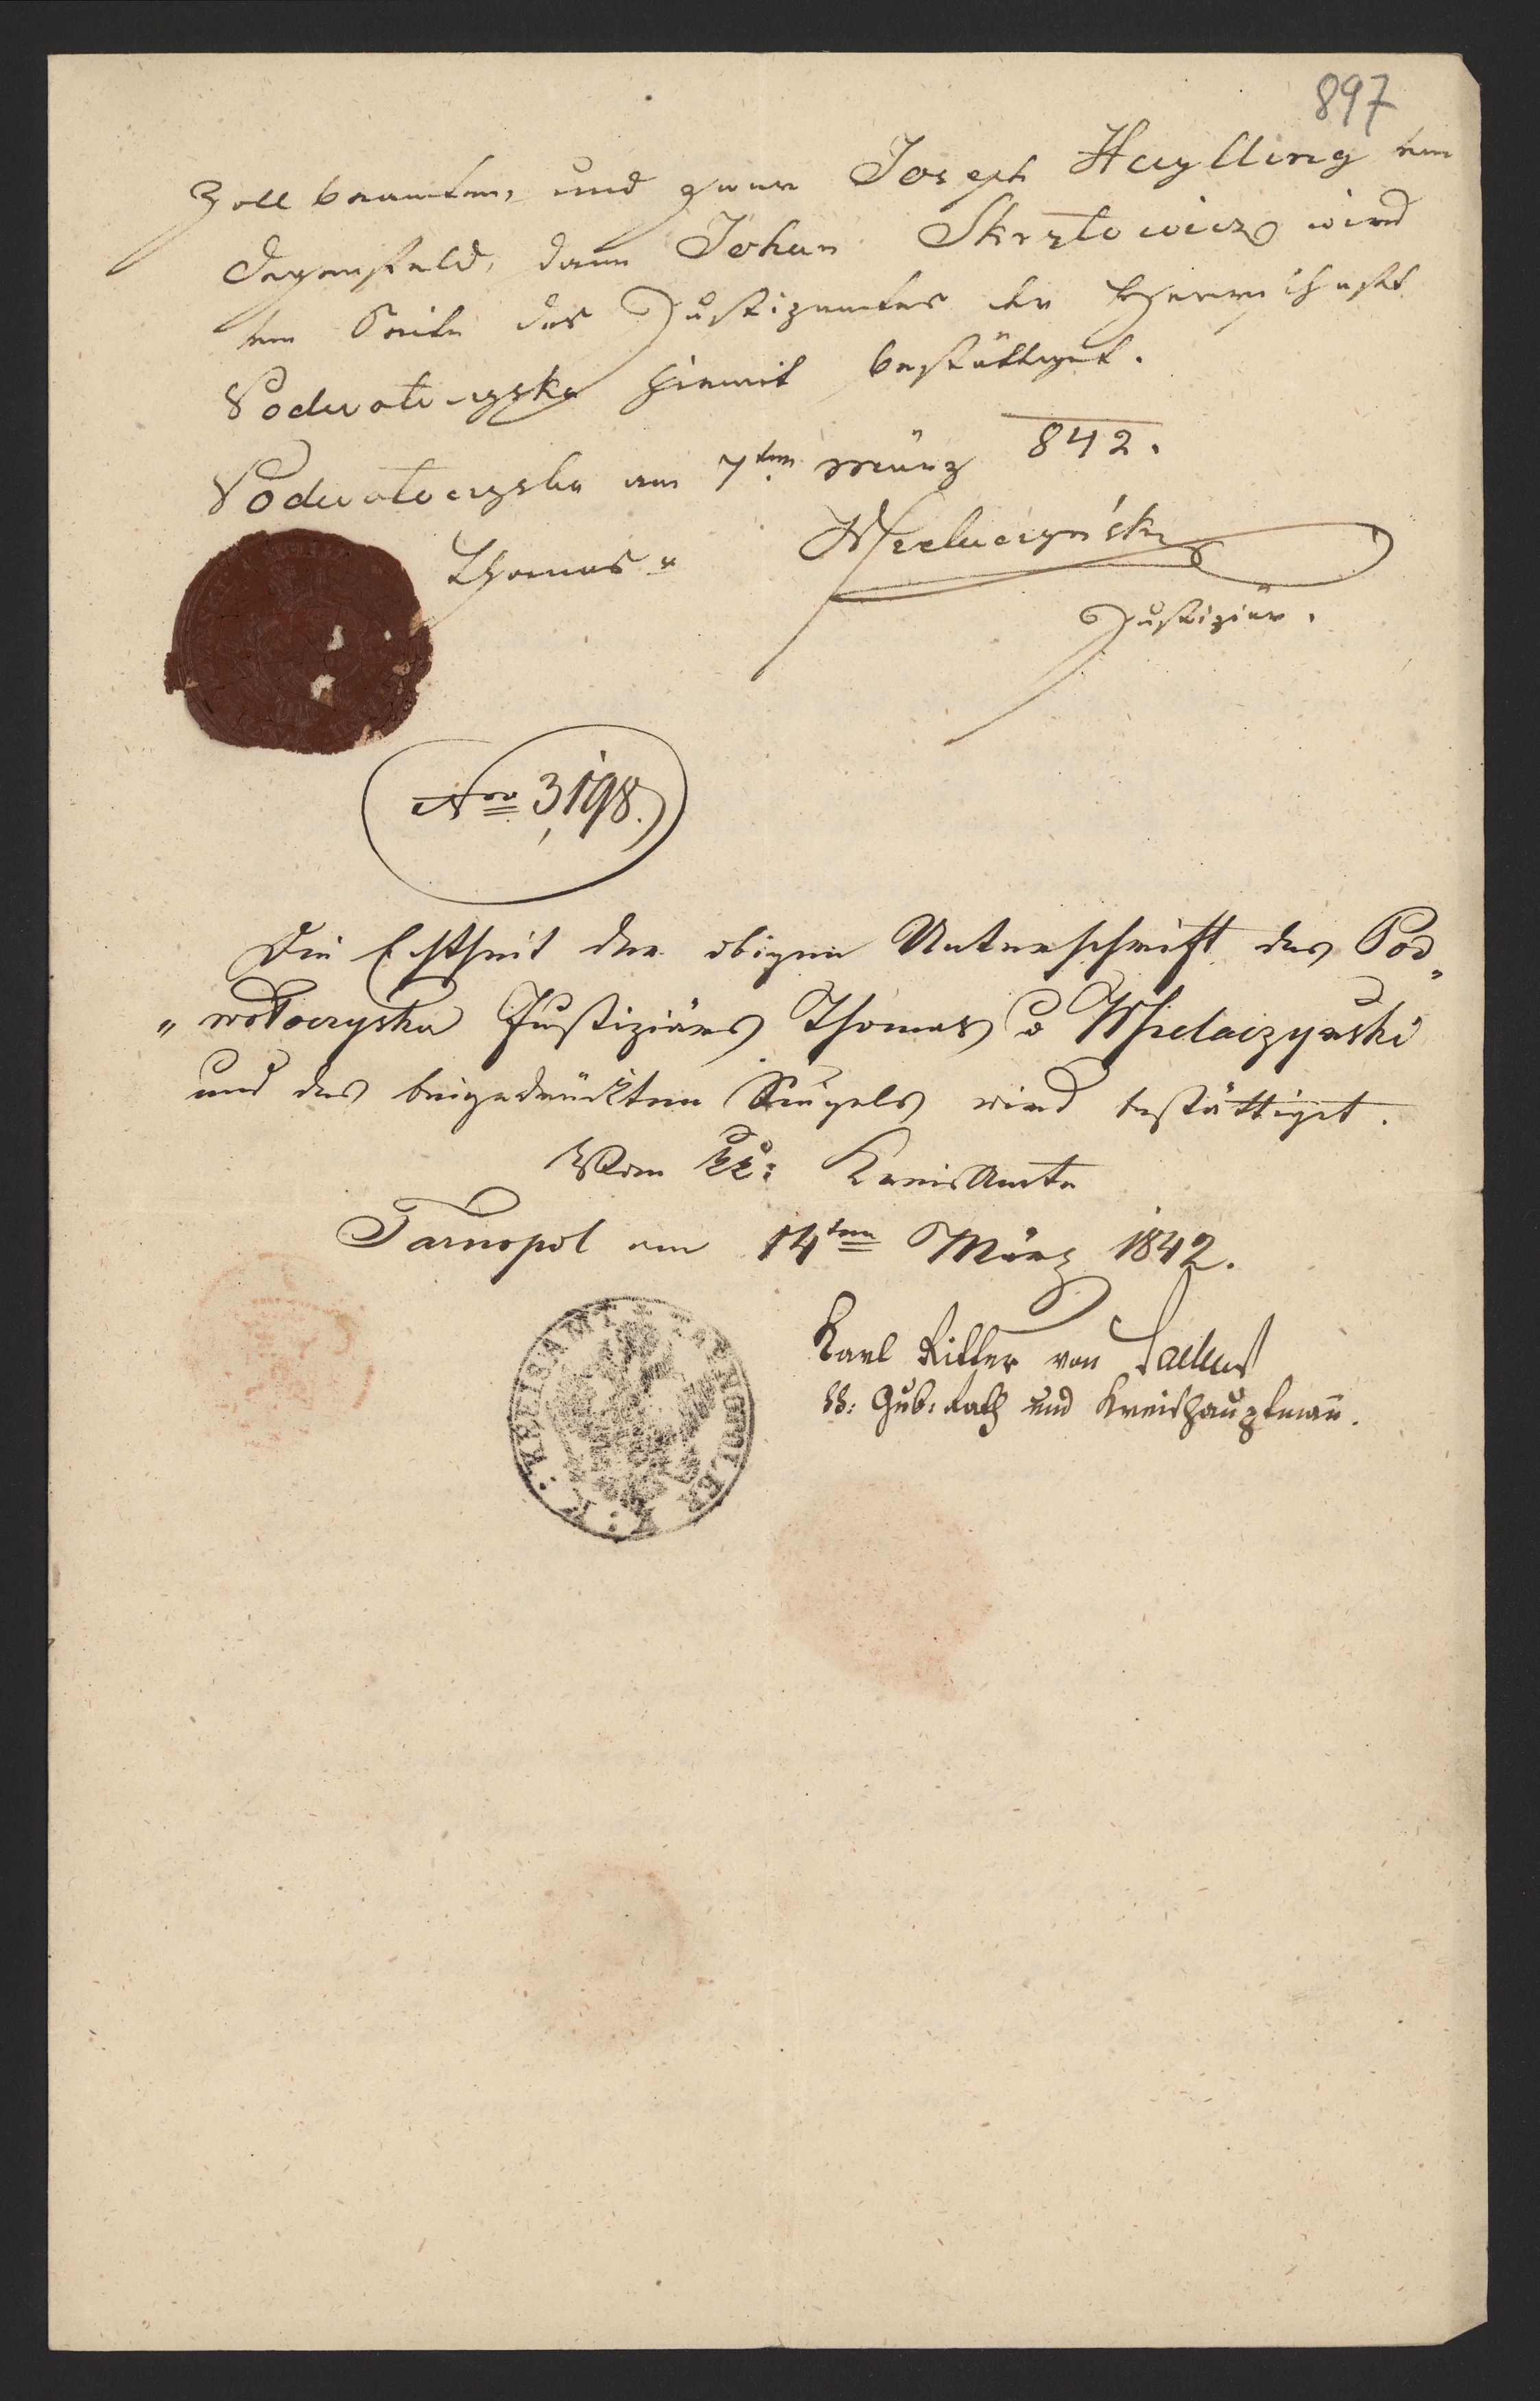 897
Zollbeamten, und zwar Joseph Haylling von
Degenfeld, dann Johan Skrzłowicz wird
von Seite des Justizamtes der Herrschaft
Podwołoczyska hiemit bestättiget.
Podwołoczyska am 7ten März 842.
Thomas v Mielaczyński
Justiziär.
Nro 3198.
Die Echtheit der obigen Unterschrift des Pod„
„wołoczyska Justiziärs Thomas v Mielaczynski
und des beigedrückten Siegels wird bestättiget.
Vom kk: Kreisamte
Tarnopol am 14ten März 1842.
Karl Ritter von
kk: Gub: Rath und Kreishauptmañ.
K: K: KREISAMT * TARNOPOLER